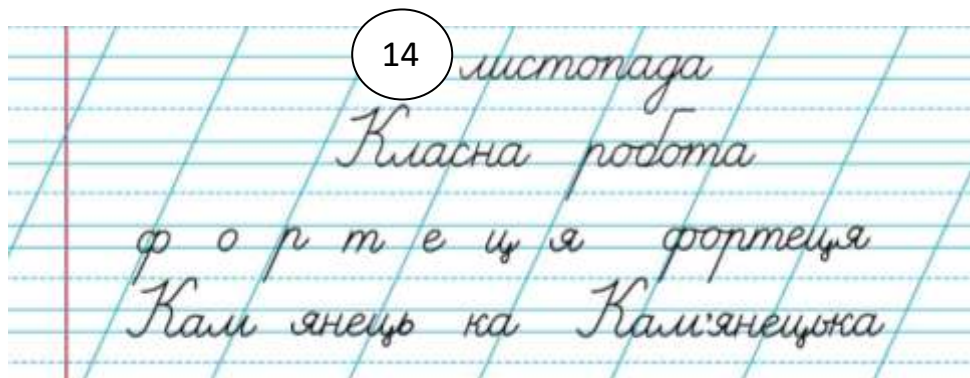 14 листопада
Класна робота
ф о р т е ц я фортеця
Кам янець ка Кам'янецька